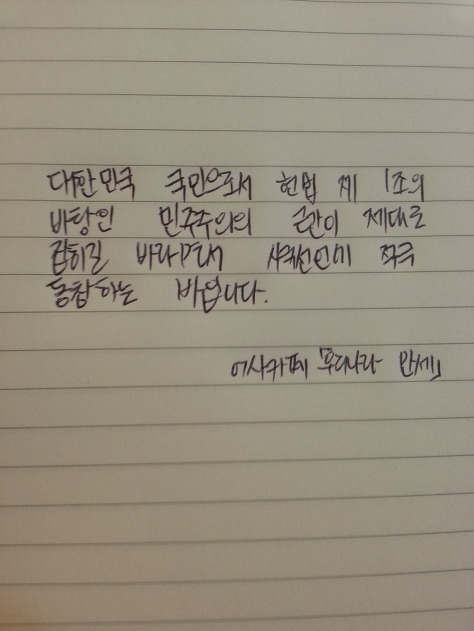 대한민국 국민으로서 헌법 제 1조의
바탕인 민주주의의 근간이 제대로
잡히길 바라면서 시국선언에 적극
동참하는 바입니다.
여사카페 「우리나라 만세」